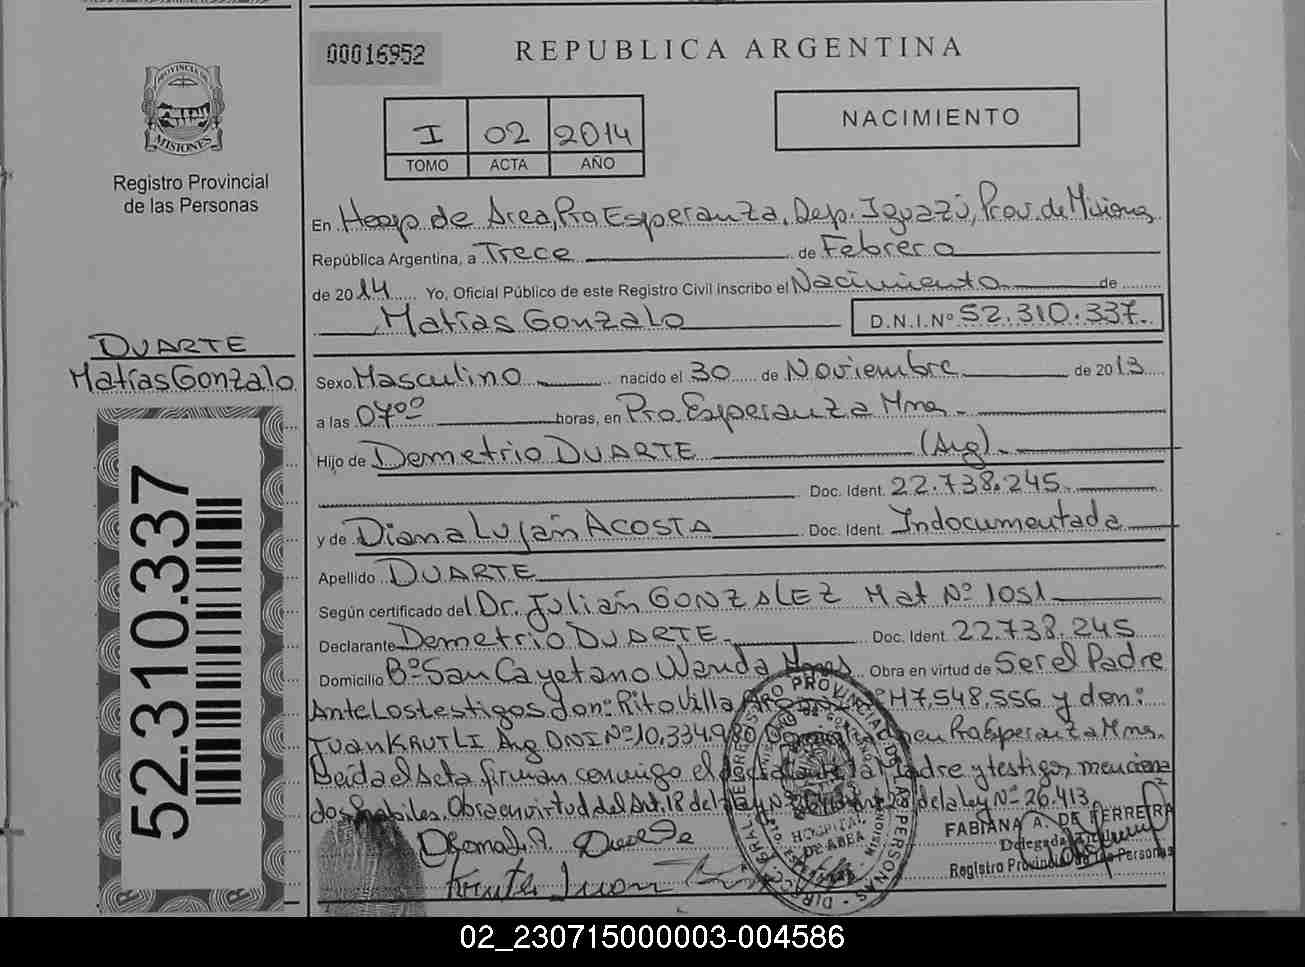 00016952
REPUBLICA ARGENTINA
PROVINCIA DE
MISIONES
Registro Provincial
de las Personas
I 02 2014
TOMO ACTA AÑO
NACIMIENTO
En Hosp de Area, Pto Esperanza, Dep. Iguazú, Prov. de Misiones
República Argentina, a Trece de Febrero
de 2014 Yo, Oficial Público de este Registro Civil inscribo el Nacimiento de
Matías Gonzalo D.N.I.Nº 52.310.337.
DUARTE
Matías Gonzalo
Sexo Masculino nacido el 30 de Noviembre de 2013
a las 07⁰⁰ horas, en Pto Esperanza Mnes.
Hijo de Demetrio DUARTE (Arg).
Doc. Ident. 22.738.245
y de Diana Luján ACOSTA Doc. Ident. Indocumentada
Apellido DUARTE
Según certificado del Dr. Julián GONZALEZ Mat Nº 1051
Declarante Demetrio DUARTE Doc. Ident. 22.738.245
Domicilio Bº San Cayetano Wanda Mnes Obra en virtud de Ser el Padre
Ante Los testigos don: Rito Villa M7.548.556 y don:
Juan KRUTLI Arg DNI Nº 10.334.980 en Pto Esperanza Mnes.
Leida el Acta firman conmigo el declarante la Madre y testigos menciona
dos habiles. Obra en virtud del Art. 18 de la Ley Nº de la Ley Nº 26.413
FABIANA A. DE FERREIRA
Delegada
Registro Provincial de las Personas
Duarte
Krutli Juan
DIRECC. GRAL. DE REGISTRO PROVINCIAL DE LAS PERSONAS
HOSPITAL
DE AREA
52.310.337
02_230715000003-004586